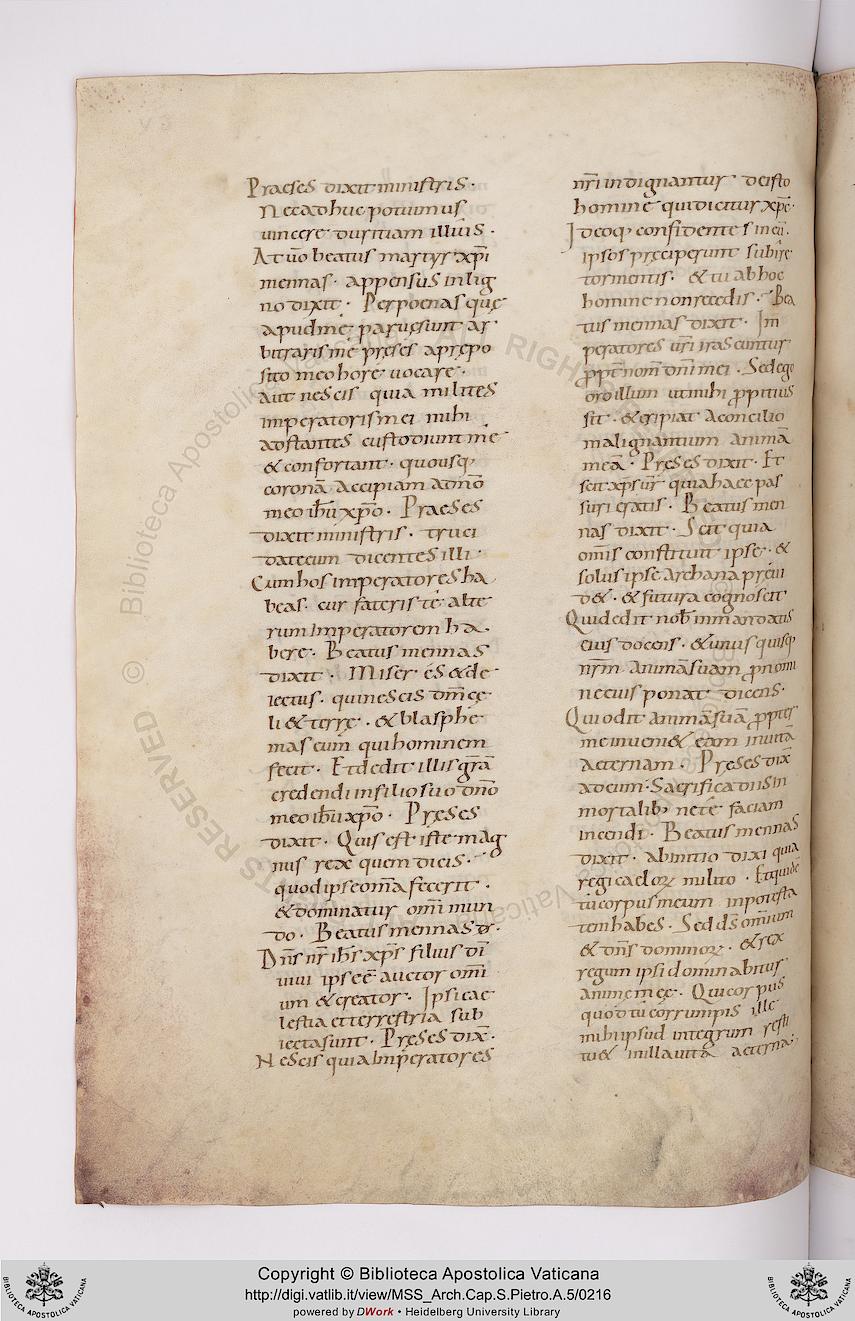 Praeses dixit ministris·
Necadhuc potuimus
uincere duritiam illius·
At uo beatus martyr xp̄i
mennas· appensus inlig
no dixit· Per poenas quę
apudmé paruę sunt ar
bitraris mé pręses a prępo
sito meo hore uocare·
Aut nescis quia milites
imperatoris mei mihi
adstantes custodiunt mé
& confortant· quousq;
coronā accipiam a dn̄o
meo ih̄u xp̄o· Praeses
dixit ministris· truci
datecum dicentes illi·
Cum hos imperatores ha
beas· cur fateris té alte
rum imperatorem ha
bere· Beatus mennas
dixit· Miser és & de
iectus· qui nescis dm̄ cę
li & terrę· & blasphe
mas eum qui hominem
fecit· Et dedit illis gr̄ā
credendi in filio suo dn̄o
meo ih̄u xp̄o· Pręses
dixit· Quis est iste mag
nus rex quem dicis·
quod ipse om̄a fecerit·
& dominatur omī mun
do· Beatus mennas d·
Dn̄s nr̄ ih̄s xp̄s filius dī
uiui ipse ē auctor omī
um & creator· Ipsi cae
lestia et terrestria sub
iecta sunt· Pręses dix̄·
Nescis quia Imperatores
nr̄i indignantur de isto
homine qui dicitur xp̄c·
Ideoq; confidentes in eū·
ipsos pręceperunt subire
tormentis· & tu ab hoc
homine non recedis· Bea
tus mennas dixit· Im
peratores ur̄i irascuntur
ꝓpt nom̄ dn̄i mei· Sed ego
oro illum ut mihi ꝓpitius
sit· & eripiat a concilio
malignantium animā
meā· Pręses dixit· Et
scit xp̄s ur̄ quia haec pas
suri eratis· Beatus men
nas dixit· Scit quia
om̄is constituit ipse· &
solus ipse archana pręui
d&· & futura cognoscit
Qui dedit nob̄ in mandatis
eius docens· & unusquisq;
nr̄m animā suam ꝓ nomi
ne eius ponat dicens·
Qui odit animā suā ꝓpter
me inueni& eam in uitā
aeternam· Pręses dix̄
ad eum· Sacrifica diis in
mortalib; ne té faciam
incendi· Beatus mennas
dixit· ab initio dixi quia
regi caeloꝝ milito· Et quidē
tu corpus meum in potesta
tem habes· Sed ds̄ omnium
& dn̄s dominoꝝ· & rex
regum ipsi dominabitur
animę meę· Qui corpus
quod tu corrumpis ille
mihi ipsud integrum resti
tu& in illa uitā aeterna·
Copyright © Biblioteca Apostolica Vaticana
http://digi.vatlib.it/view/MSS_Arch.Cap.S.Pietro.A.5/0216
powered by DWork • Heidelberg University Library